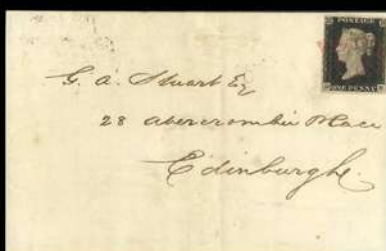 POSTAGE
ONE PENNY
G. A. Stuart Esq
28 Abercrombie Place
Edinburgh.